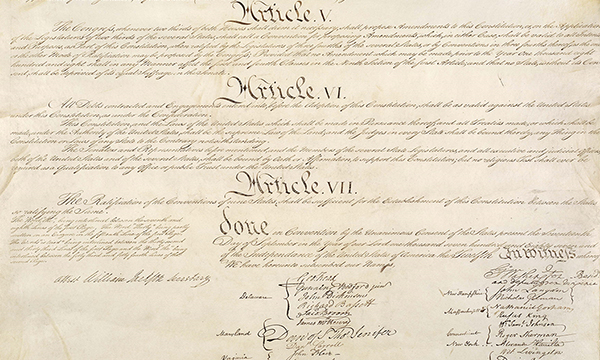 Article. V.
The Congress, whenever two thirds of both Houses shall deem it necessary, shall propose Amendments to this Constitution, or, on the Application
of the Legislatures of two thirds of the several States, shall call a Convention for proposing Amendments, which, in either Case, shall be valid to all Intents
and Purposes, as Part of this Constitution, when ratified by the Legislatures of three fourths of the several States, or by Conventions in three fourths thereof, as the
one or the other Mode of Ratification may be proposed by the Congress; Provided that no Amendment which may be made prior to the Year One thousand eight
hundred and eight shall in any Manner affect the first and fourth Clauses in the Ninth Section of the first Article; and that no State, without its Con-
sent, shall be deprived of its equal Suffrage in the Senate.
Article. VI.
All Debts contracted and Engagements entered into, before the Adoption of this Constitution, shall be as valid against the United States
under this Constitution, as under the Confederation.
This Constitution, and the Laws of the United States which shall be made in Pursuance thereof; and all Treaties made, or which shall be
made, under the Authority of the United States, shall be the supreme Law of the Land; and the Judges in every State shall be bound thereby, any Thing in the
Constitution or Laws of any State to the Contrary notwithstanding.
The Senators and Representatives before mentioned, and the Members of the several State Legislatures, and all executive and judicial Officers,
both of the United States and of the several States, shall be bound by Oath or Affirmation, to support this Constitution; but no religious Test shall ever be
required as a Qualification to any Office or public Trust under the United States.
Article. VII.
The Ratification of the Conventions of nine States, shall be sufficient for the Establishment of this Constitution between the States
so ratifying the Same.
done in Convention by the Unanimous Consent of the States present the Seventeenth
Day of September in the Year of our Lord one thousand seven hundred and Eighty seven and
of the Independance of the United States of America the Twelfth In witness
We have hereunto subscribed our Names,
attest William Jackson Secretary
Delaware
Geo: Read
Gunning Bedford jun
John Dickinson
Richard Bassett
Jaco: Broom
Maryland
James McHenry
Dan of St Thos. Jenifer
Danl Carroll
Virginia
John Blair
New Hampshire
John Langdon
Nicholas Gilman
Nathaniel Gorham
Rufus King
Wm Saml Johnson
Roger Sherman
New York
Alexander Hamilton
Wil: Livingston